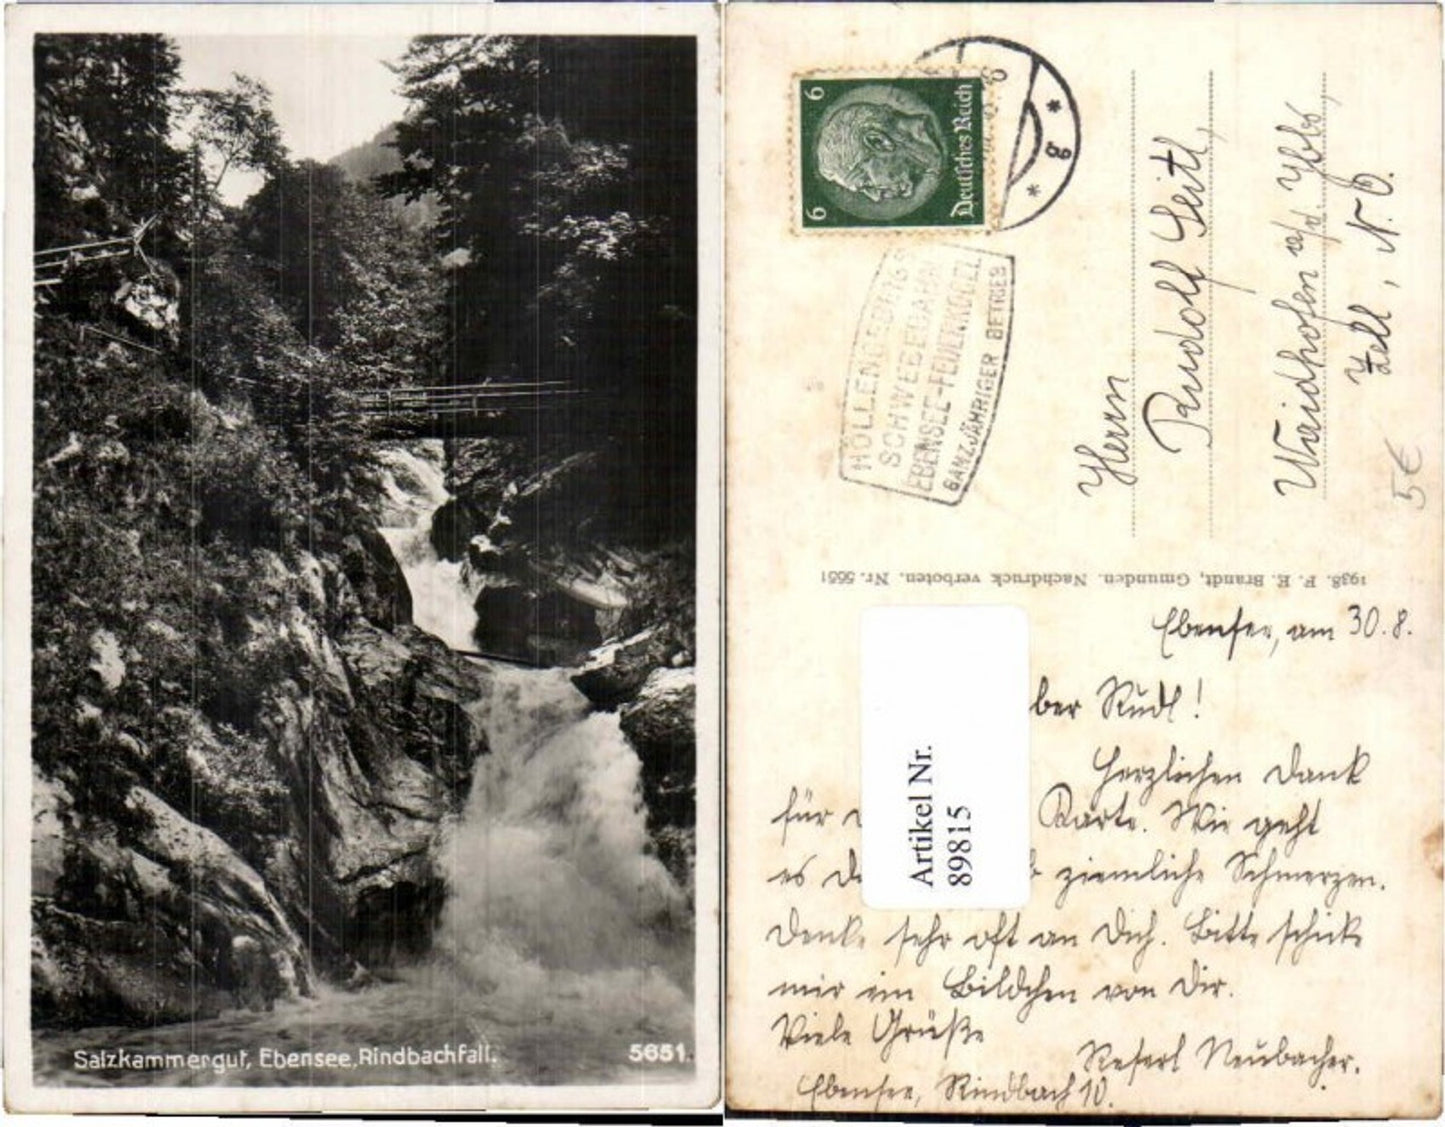 Salzkammergut, Ebensee, Rindbachfall.
5651.
6
6
Deutsches Reich
HÖLLENGEBIRGS
SCHWEBEBAHN
EBENSEE-FEUERKOGEL
GANZJÄHRIGER BETRIEB
Herrn
Rudolf Seitl,
Waidhofen a/d Ybbs,
Zell, N.Ö.
5€
1938. F. E. Brandt, Gmunden. Nachdruck verboten. Nr. 5651
Ebensee, am 30.8.
ber Rudl!
Herzlichen Dank
für Karte. Wie geht
es ziemliche Schmerzen.
Denke sehr oft an Dich. Bitte schicke
mir ein Bildchen von Dir.
Viele Grüße
Neubacher.
Ebensee, Rindbach 10.
Artikel Nr.
89815